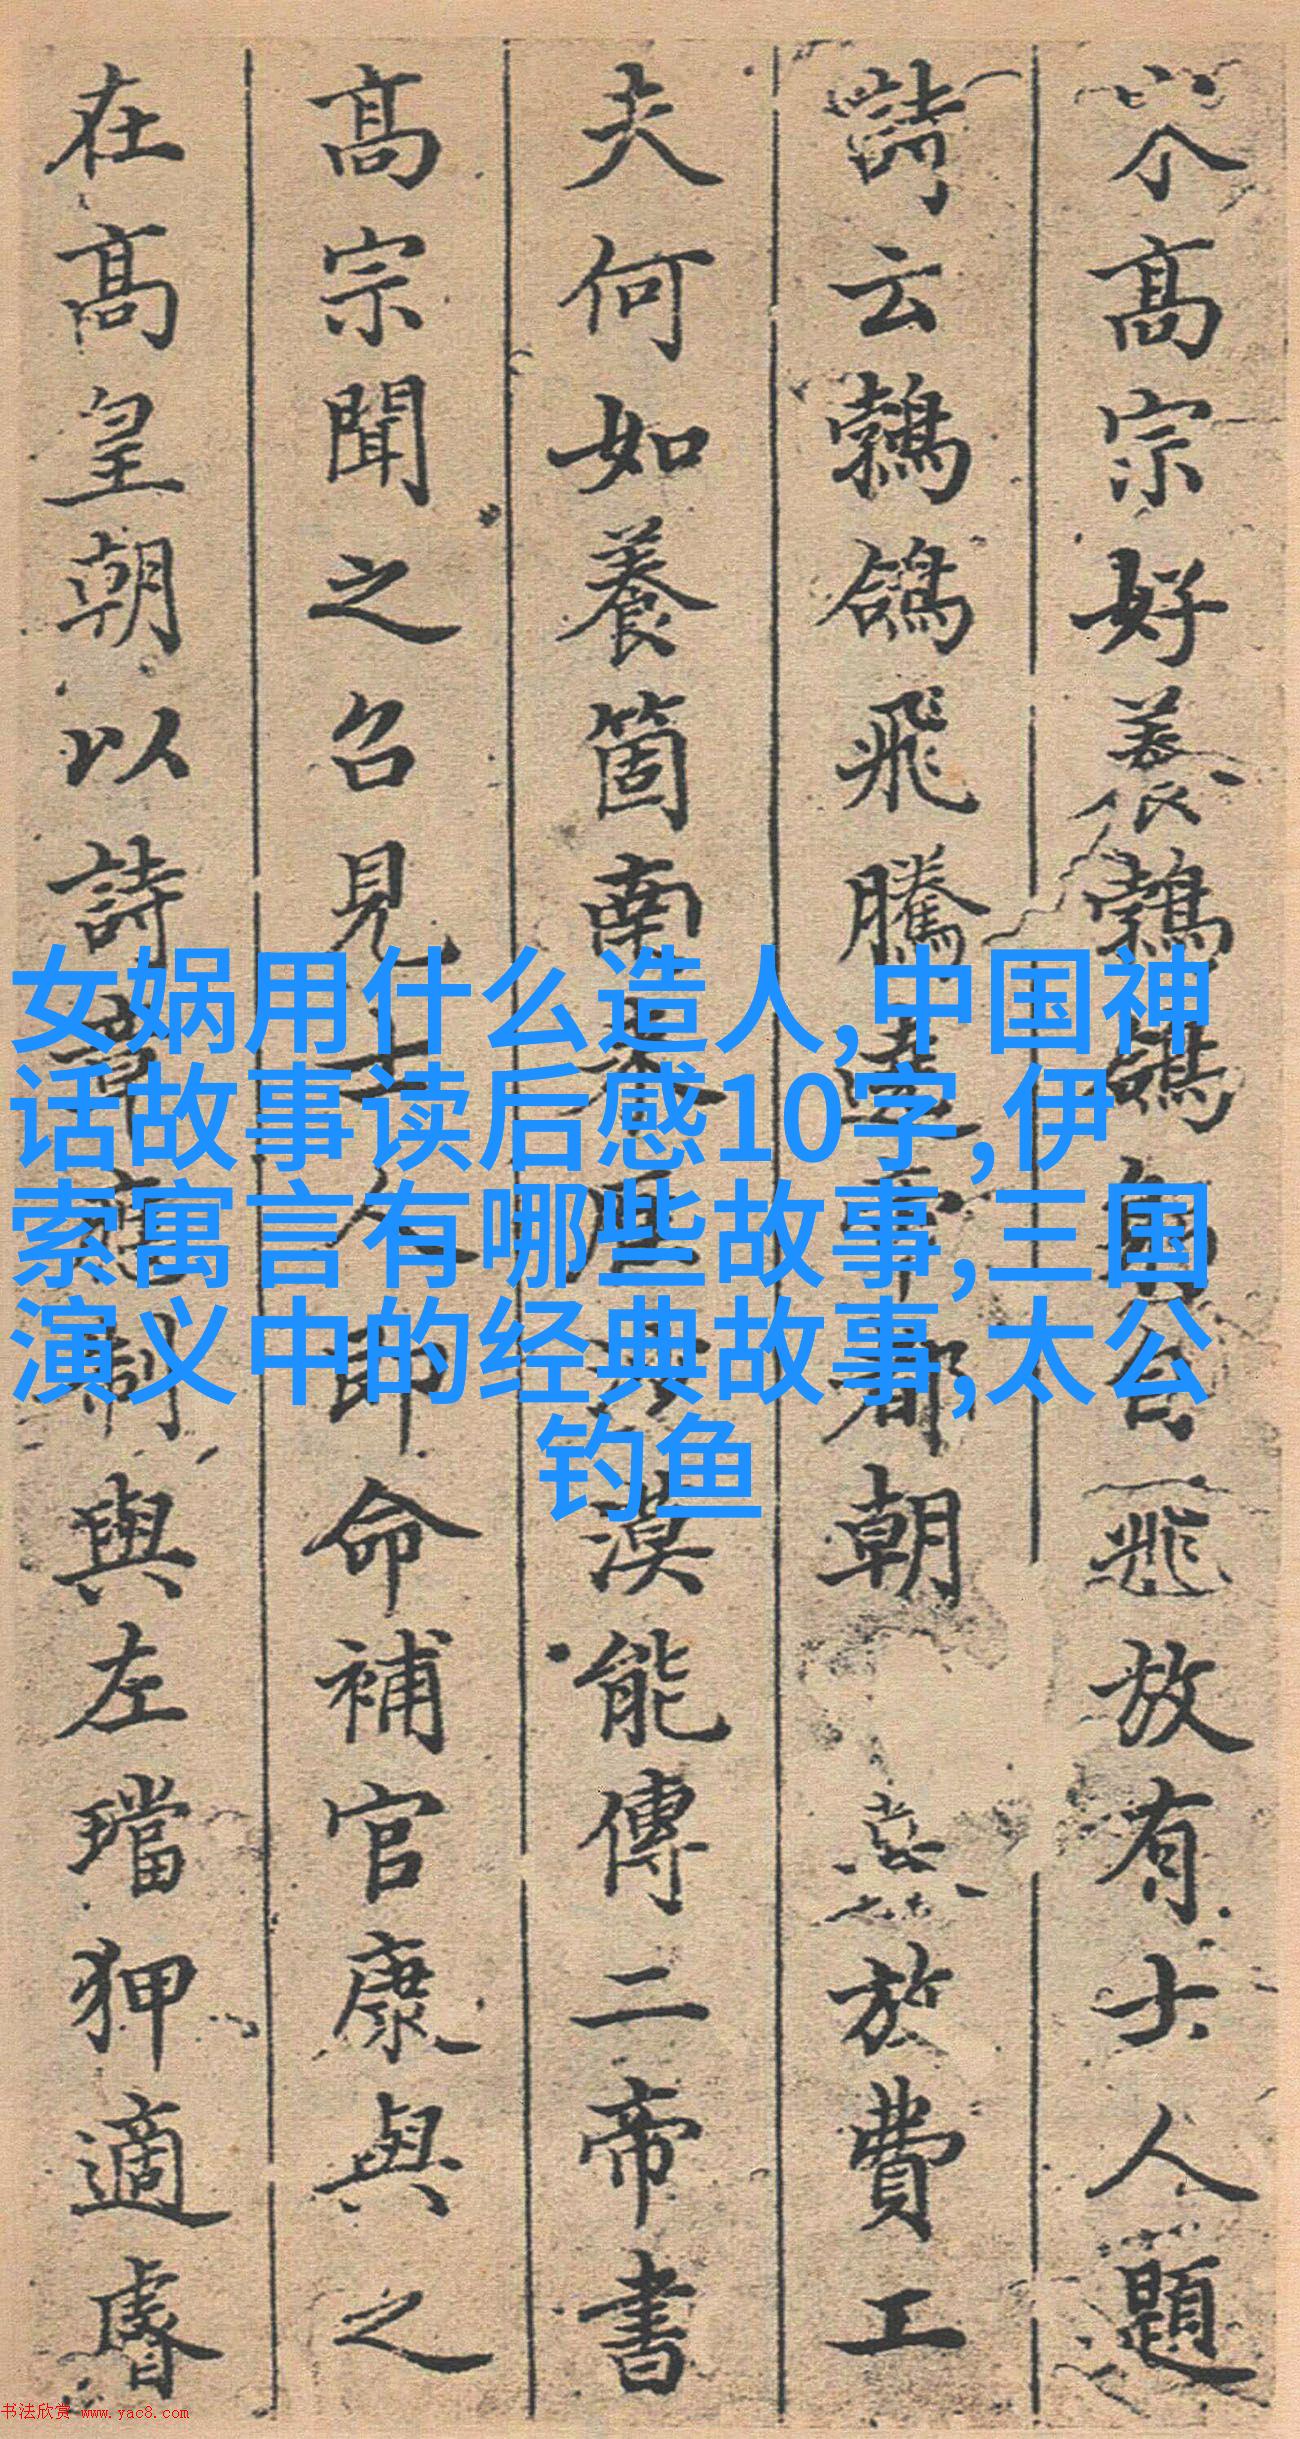 高宗好養鵓鴿放有士人題
詩云鵓鴿飛騰遶帝都朝於費工
夫何如養箇南來雁沙漠能傳二帝書
高宗聞之召見士人即命補官康與之
在高皇朝以詩章應制與左璫狎適睿
女娲用什么造人,中国神
话故事读后感10字,伊
索寓言有哪些故事,三国
演义中的经典故事,太公
钓鱼
书法欣赏 www.yac8.com